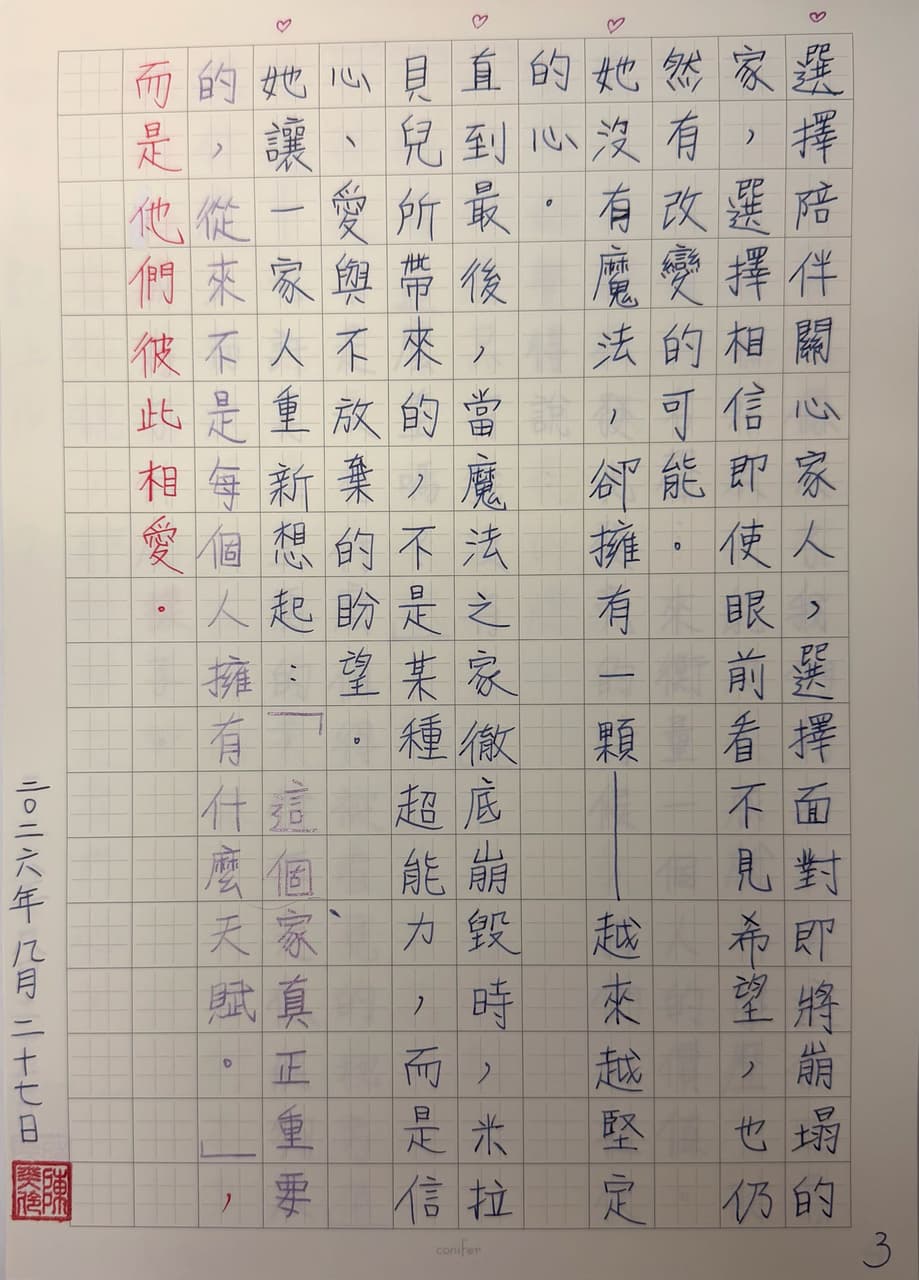 選擇陪伴關心家人，選擇面對即將崩塌的
家，選擇相信即使眼前看不見希望，也仍
然有改變的可能。
她沒有魔法，卻擁有一顆——越來越堅定
的心。
直到最後，當魔法之家徹底崩毀時，米拉
貝兒所帶來的，不是某種超能力，而是信
心、愛與不放棄的盼望。
她讓一家人重新想起：「這個家真正重要
的，從來不是每個人擁有什麼天賦。」，
而是他們彼此相愛。
二〇二六年八月二十七日
陳
conifer
3